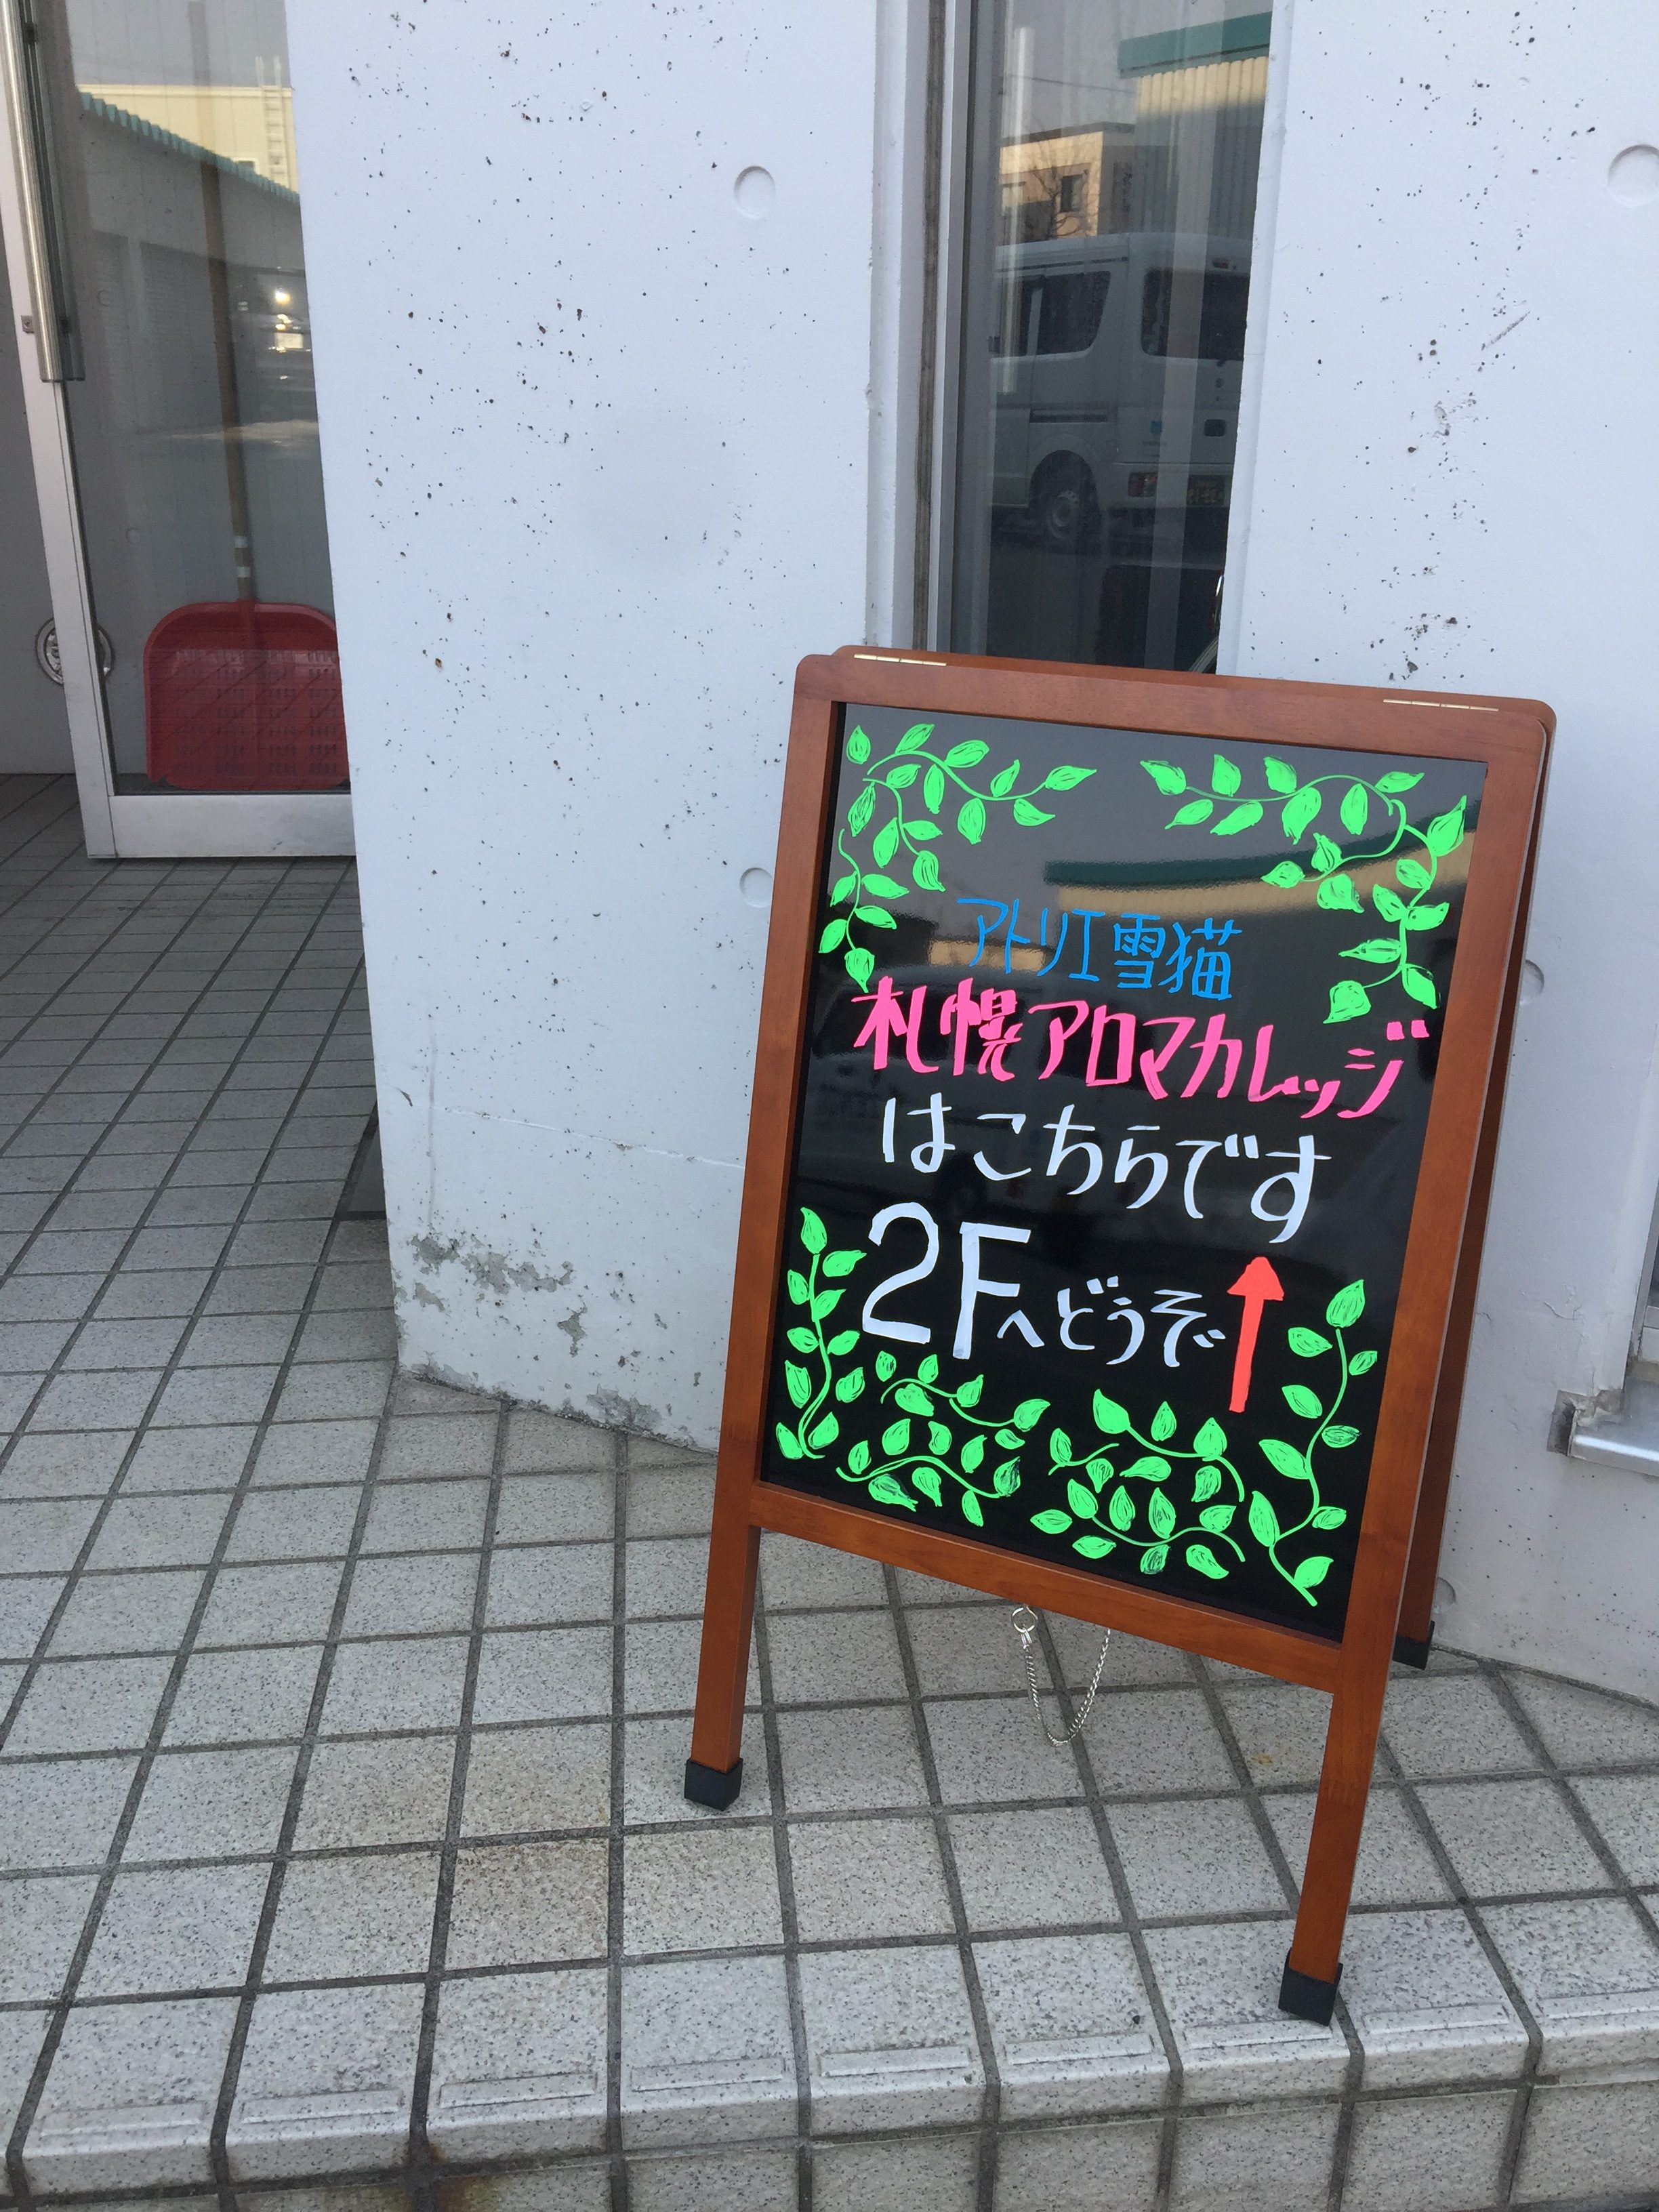 アトリエ雪猫
札幌アロマカレッジ
はこちらです
2Fへどうぞ↑